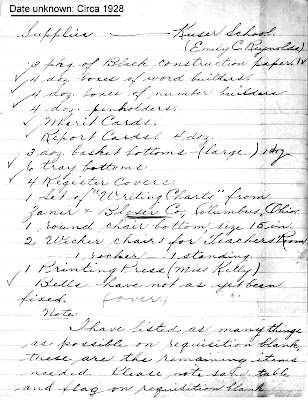 Date unknown: Circa 1928
Supplies — Kuser School.
(Emily C. Reynolds)
3 pkg. of Black construction paper. ✓
✓ 4 doz boxes of word builders.
✓ 4 doz. boxes of number builders
4 doz. penholders.
✓ Merit Cards.
✓ Report Cards. 4 doz.
✓ 3 doz basket bottoms (large.) 1 doz
✓ 6 tray bottoms
4 Register Covers.
1 set of "Writing Charts" from
Zaner & Bloser Co., Columbus, Ohio.
1 round chair bottom size 15 in.
2 Wicker chairs for Teachers Room
1 rocker 1 standing
1 Printing Press (Miss Kelly)
✓ Bells have not as yet been
fixed. (over)
Note:
I have listed as many things
as possible on requisition blank,
these are the remaining items
needed. Please note sand table
and flag on requisition blank